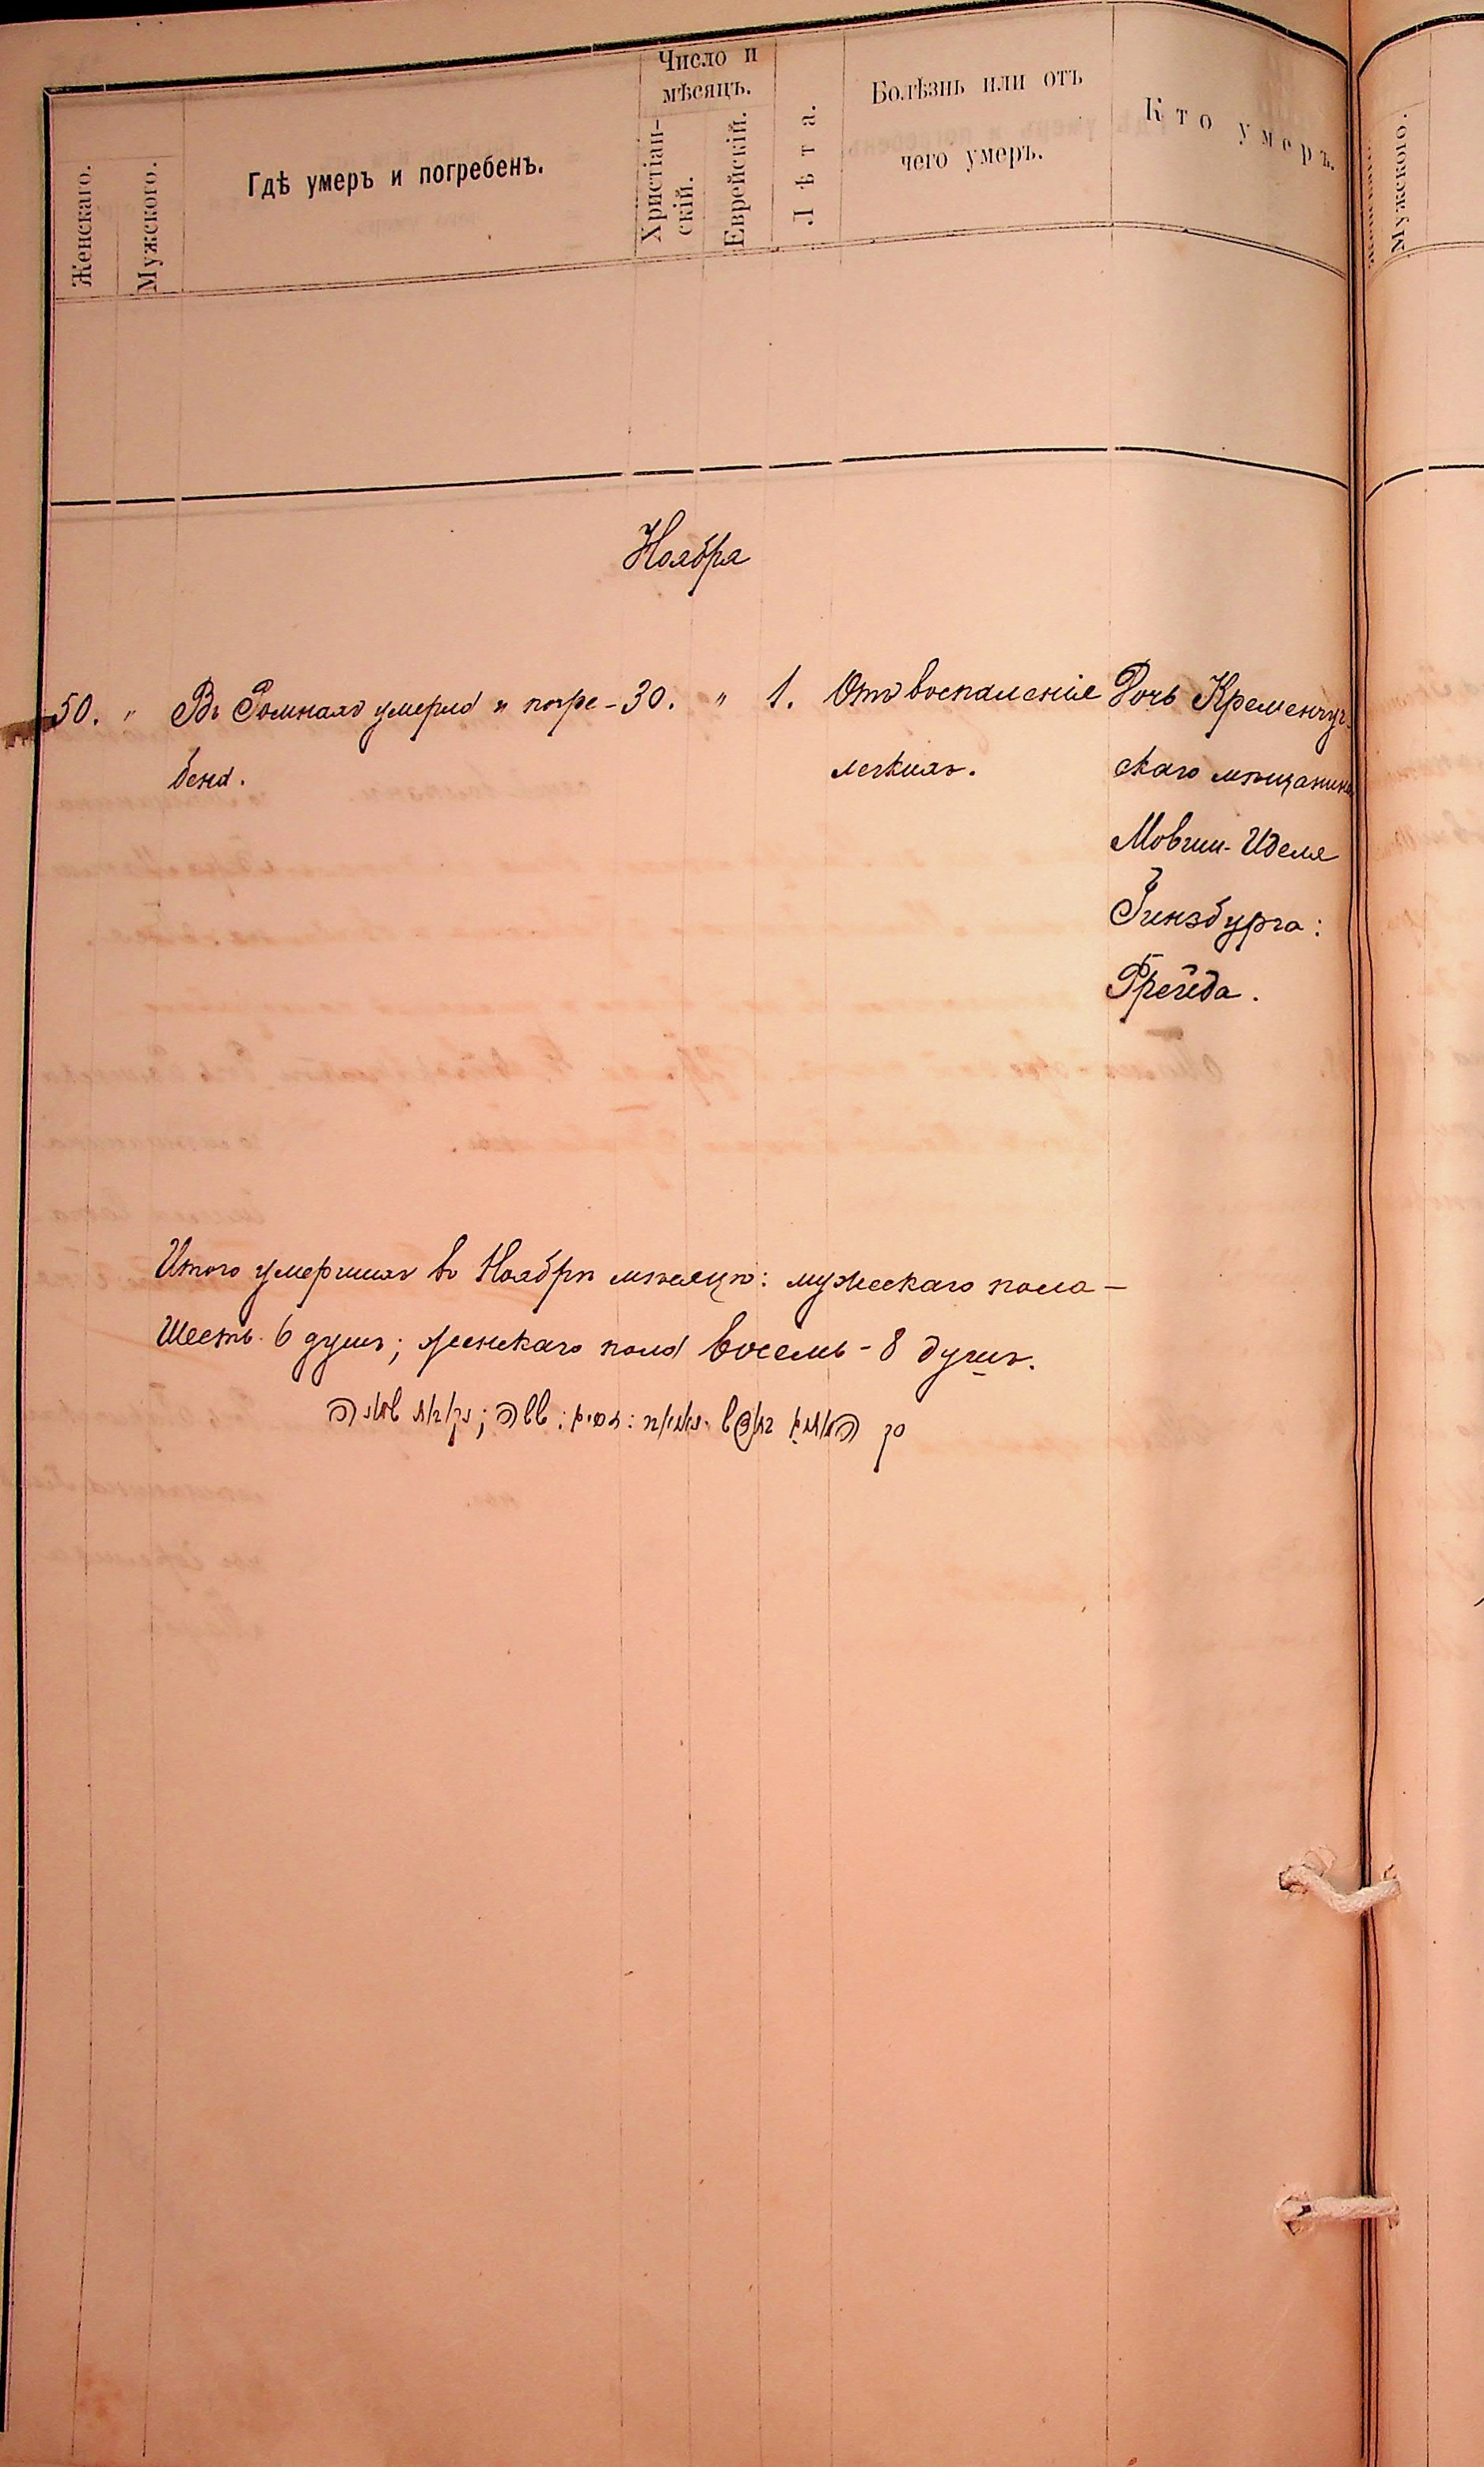 Женскаго.
Мужского.
Гдѣ умеръ и погребенъ.
Число и
мѣсяцъ.
Христіан-
скій.
Еврейскій.
Лѣта.
Болѣзнь или отъ
чего умеръ.
Кто умеръ.
Мужского.
Ноября
50. " Въ Ромнахъ умерла и погре- 30. " 1. Отъ воспаленіе Дочь Кременчуг-
бена. легкихъ. скаго мѣщанина
Мовши-Иделя
Гинзбурга:
Фрейда.
Итого умершихъ въ Ноябрѣ мѣсяцѣ: мужескаго пола -
Шесть 6 душъ; женскаго пола восемь - 8 душъ.